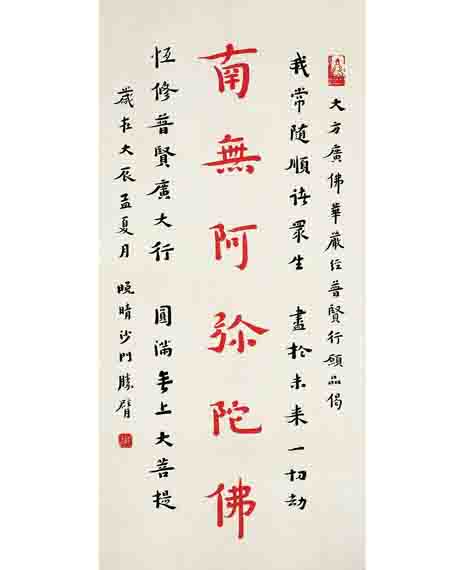 大方廣佛華嚴經普賢行願品偈
我常隨順諸眾生 盡於未来一切劫
南無阿弥陀佛
恆修普賢廣大行 圓滿無上大菩提
歲在大辰孟夏月 晚晴沙門勝臂